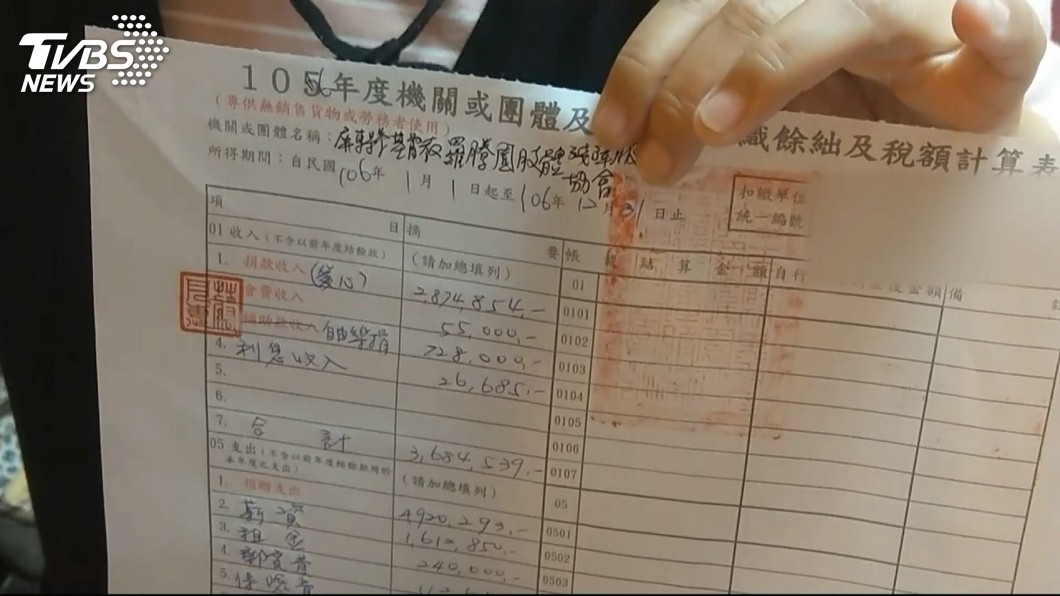 TVBS
NEWS
106年度機關或團體及 織餘絀及稅額計算表
(專供無銷售貨物或勞務者使用)
機關或團體名稱:屏東縣基督教羅騰園肢體殘障服
協會
所得期間:自民國106年1月1日起至106年12月31日止
扣繳單位
統一編號
項 目 摘 要 帳 載 結 算 金 額 自行 後金額 備
01 收入(不含以前年度結餘款) (請加總填列) 01
1. 捐款收入(愛心) 2,874,854,- 0101
會費收入 55,000,- 0102
補助款收入 自由樂捐 728,000,- 0103
4. 利息收入 26,685,- 0104
5. 0105
6. 0106
7. 合 計 3,684,539,- 0107
05 支出(不含以前年度結餘款用於
本年度之支出) (請加總填列) 05
1. 捐贈支出 0501
2. 薪資 1,613,850,- 0502
3. 租金 240,000,- 0503
4. 郵電費
5. 保險費